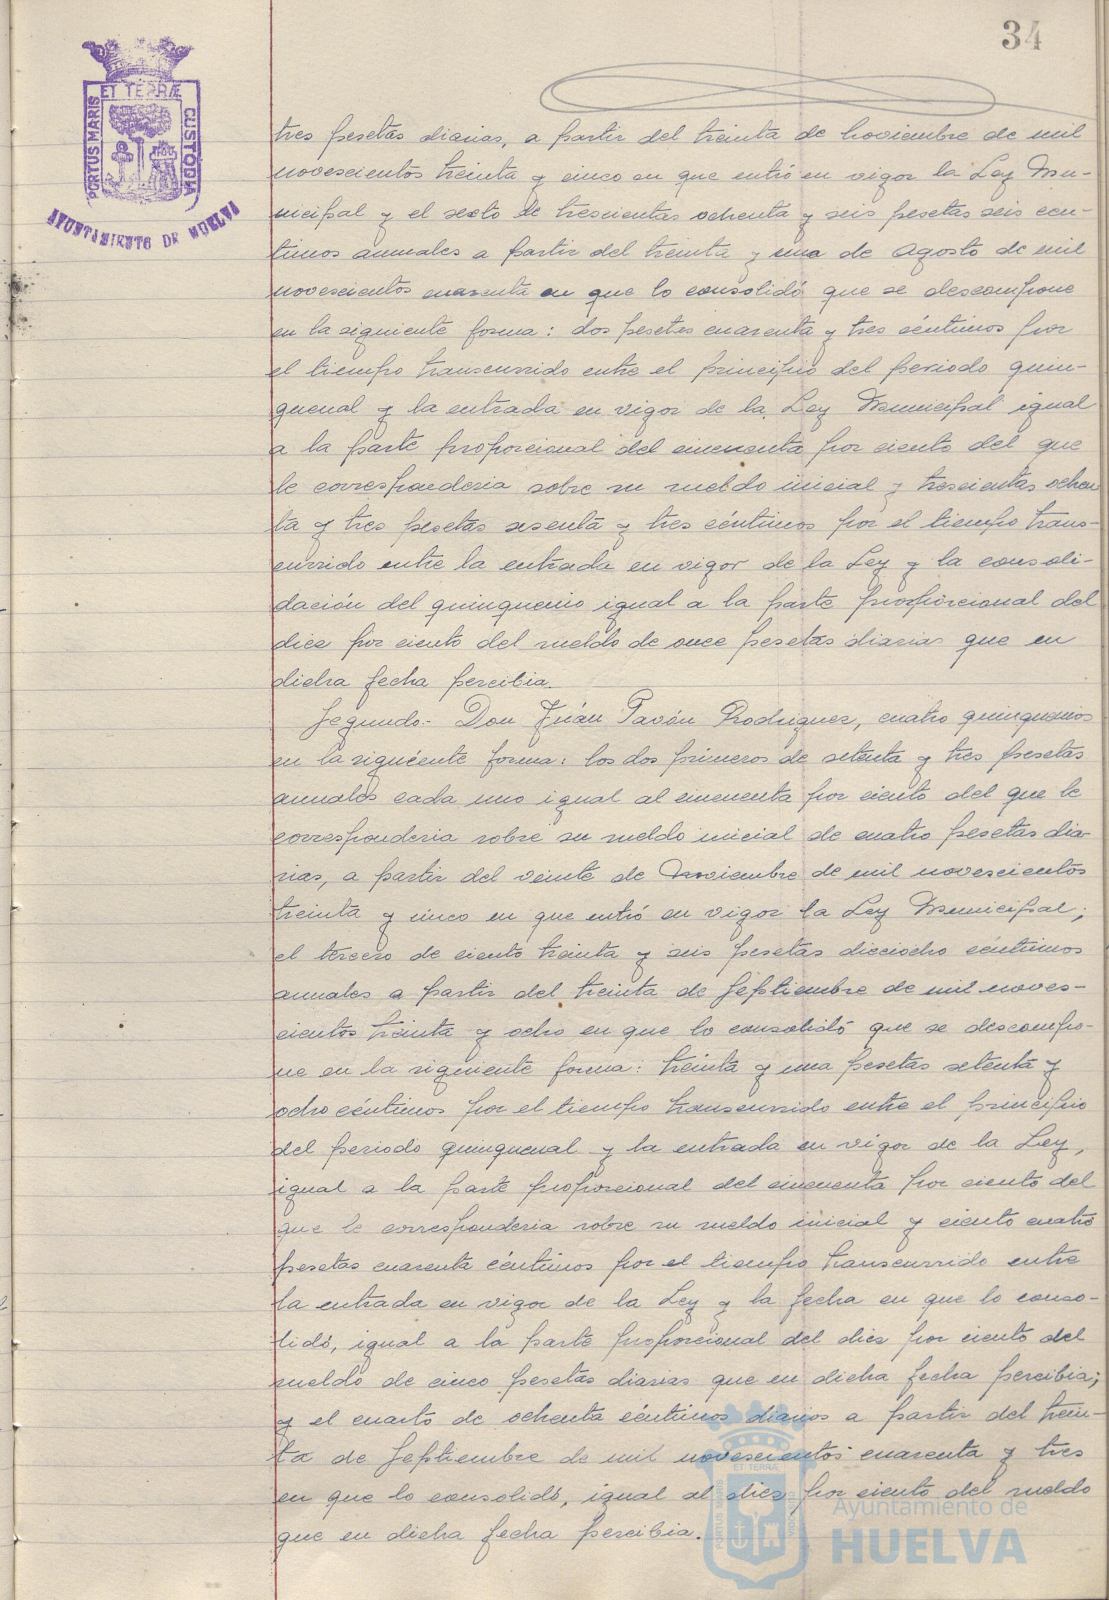 34
ET TERRÆ
PORTUS MARIS
CUSTODIA
AYUNTAMIENTO DE HUELVA
tres pesetas diarias, a partir del treinta de Noviembre de mil
novescientos treinta y cinco en que entró en vigor la Ley Mu-
nicipal y el sexto de trescientas ochenta y seis pesetas seis cen-
timos anuales a partir del treinta y uno de Agosto de mil
novescientos cuarenta en que lo consolidó que se descompone
en la siguiente forma: dos pesetas cuarenta y tres céntimos por
el tiempo transcurrido entre el principio del periodo quin-
quenal y la entrada en vigor de la Ley Municipal igual
a la parte proporcional del cincuenta por ciento del que
le corresponderia sobre su sueldo inicial y trescientas ochen
ta y tres pesetas sesenta y tres céntimos por el tiempo trans-
currido entre la entrada en vigor de la Ley y la consoli-
dación del quinquenio igual a la parte proporcional del
diez por ciento del sueldo de once pesetas diarias que en
dicha fecha percibia.
Segundo.- Don Juan Pavón Rodriguez, cuatro quinquenios
en la siguiente forma: los dos primeros de setenta y tres pesetas
anuales cada uno igual al cincuenta por ciento del que le
corresponderia sobre su sueldo inicial de cuatro pesetas dia-
rias, a partir del veinte de Noviembre de mil novescientos
treinta y cinco en que entró en vigor la Ley Municipal;
el tercero de ciento treinta y seis pesetas dieciocho céntimos
anuales a partir del treinta de Septiembre de mil noves-
cientos treinta y ocho en que lo consolidó que se descompo-
ne en la siguiente forma: treinta y una pesetas setenta y
ocho céntimos por el tiempo transcurrido entre el principio
del periodo quinquenal y la entrada en vigor de la Ley,
igual a la parte proporcional del cincuenta por ciento del
que le corresponderia sobre su sueldo inicial y ciento cuatro
pesetas cuarenta céntimos por el tiempo transcurrido entre
la entrada en vigor de la Ley y la fecha en que lo conso-
lidó, igual a la parte proporcional del diez por ciento del
sueldo de cinco pesetas diarias que en dicha fecha percibia;
y el cuarto de ochenta céntimos diarios a partir del trein-
ta de Septiembre de mil novescientos cuarenta y tres
en que lo consolidó, igual al diez por ciento del sueldo
que en dicha fecha percibia.
ET TERRÆ
PORTUS MARIS
Ayuntamiento de
HUELVA